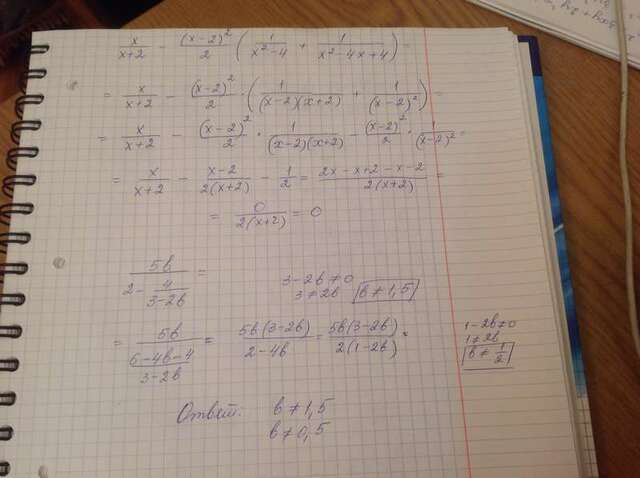 x/(x+2) - (x-2)²/2 (1/(x²-4) + 1/(x²-4x+4)) =
= x/(x+2) - (x-2)²/2 · (1/((x-2)(x+2)) + 1/(x-2)²) =
= x/(x+2) - (x-2)²/2 · 1/((x-2)(x+2)) - (x-2)²/2 · 1/(x-2)² =
= x/(x+2) - (x-2)/(2(x+2)) - 1/2 = (2x-x+2-x-2)/(2(x+2)) =
= 0/(2(x+2)) = 0
5b/(2 - 4/(3-2b)) =
3-2b≠0
3≠2b b≠1,5
= 5b/((6-4b-4)/(3-2b)) = 5b(3-2b)/(2-4b) = 5b(3-2b)/(2(1-2b))
1-2b≠0
1≠2b
b≠1/2
Ответ: b≠1,5
b≠0,5